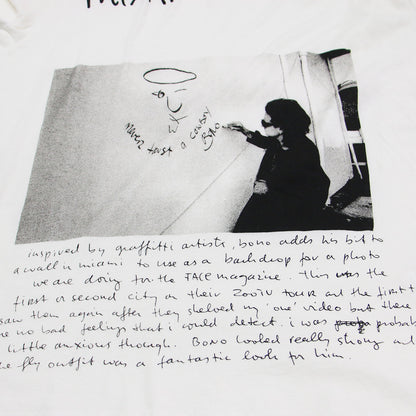 never trust a cowboy
Bono
inspired by graffitti artists, bono adds his bit to
a wall in miami to use as a backdrop for a photo
we are doing for the FACE magazine. this was the
first or second city on their ZooTV tour and the first t
saw them again after they shelved my 'one' video but there
re no bad feelings that i could detect. i was probab
little anxious though. Bono looked really strong and
e fly outfit was a fantastic look for him.